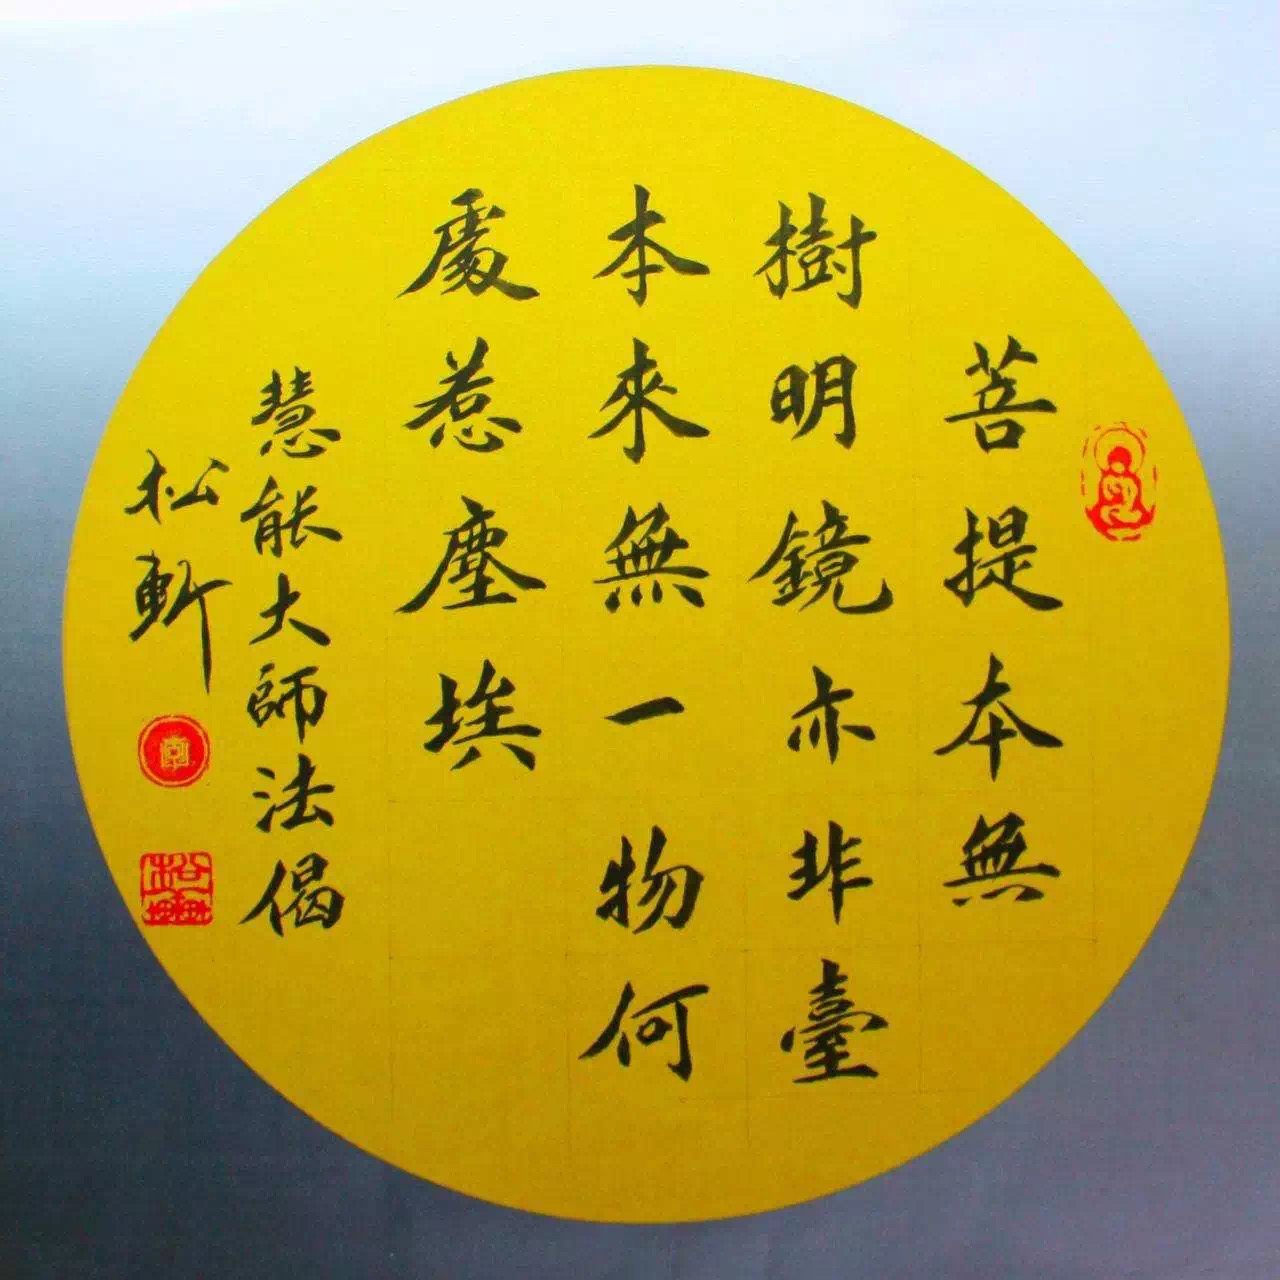 菩提本無
樹明鏡亦非臺
本來無一物何
處惹塵埃
慧能大師法偈
松軒